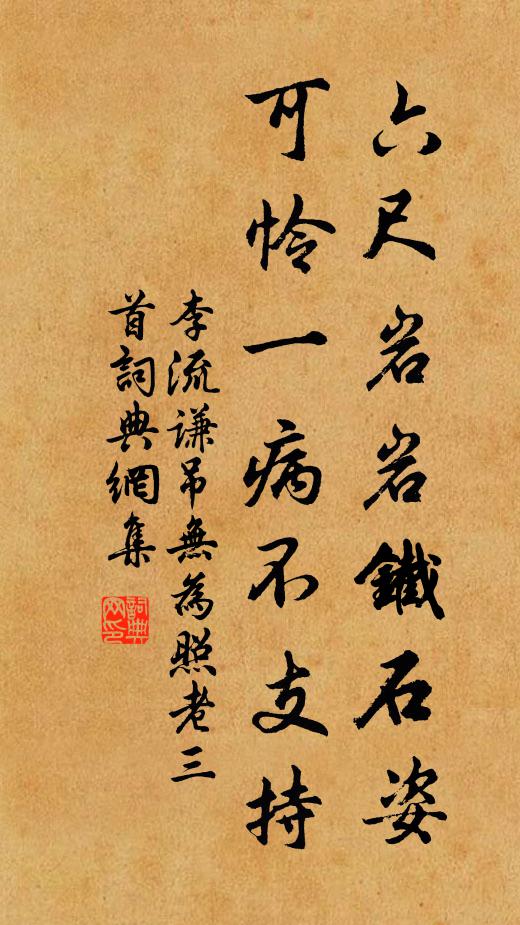 六尺岩岩鐵石姿
可怜一病不支持
李流謙吊無為照老三
首詞典網集
詞典
网印